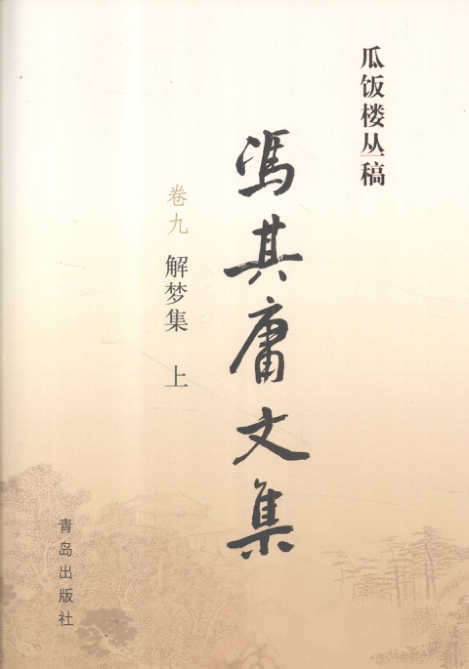 瓜饭楼丛稿
冯其庸文集
卷九 解梦集 上
青岛出版社